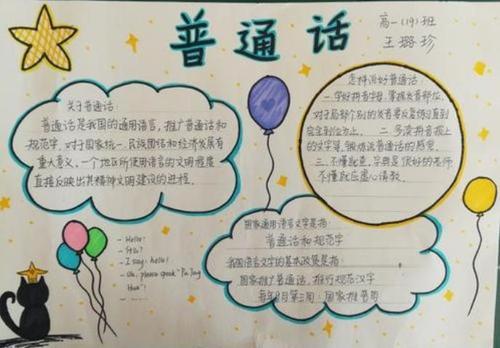 普通话
高一(19)班
王璐珍
关于普通话:
普通话是我国的通用语言,推广普通话和
规范字,对于国家统一、民族团结和经济发展有
重大意义,一个地区所使用语言的文明程度
直接反映出其精神文明建设的进程。
怎样说好普通话:
一.学好拼音字母,掌握发音部位,
对于局部个别的发音要反复练习直到
完全到位为止。二.多读拼音报上
的文字等,锻炼说普通话的感觉。
三.不懂就查,字典是很好的老师
不懂就应虚心请教。
- Hello!
- Siu?
- I say: hello!
- Uh, please speak "Pu Tong
Hua"!
- ……
国家通用语言文字是指:
普通话和规范字
我国语言文字的基本政策是指:
国家推广普通话,推行规范汉字
每年9月第三周:国家推普周